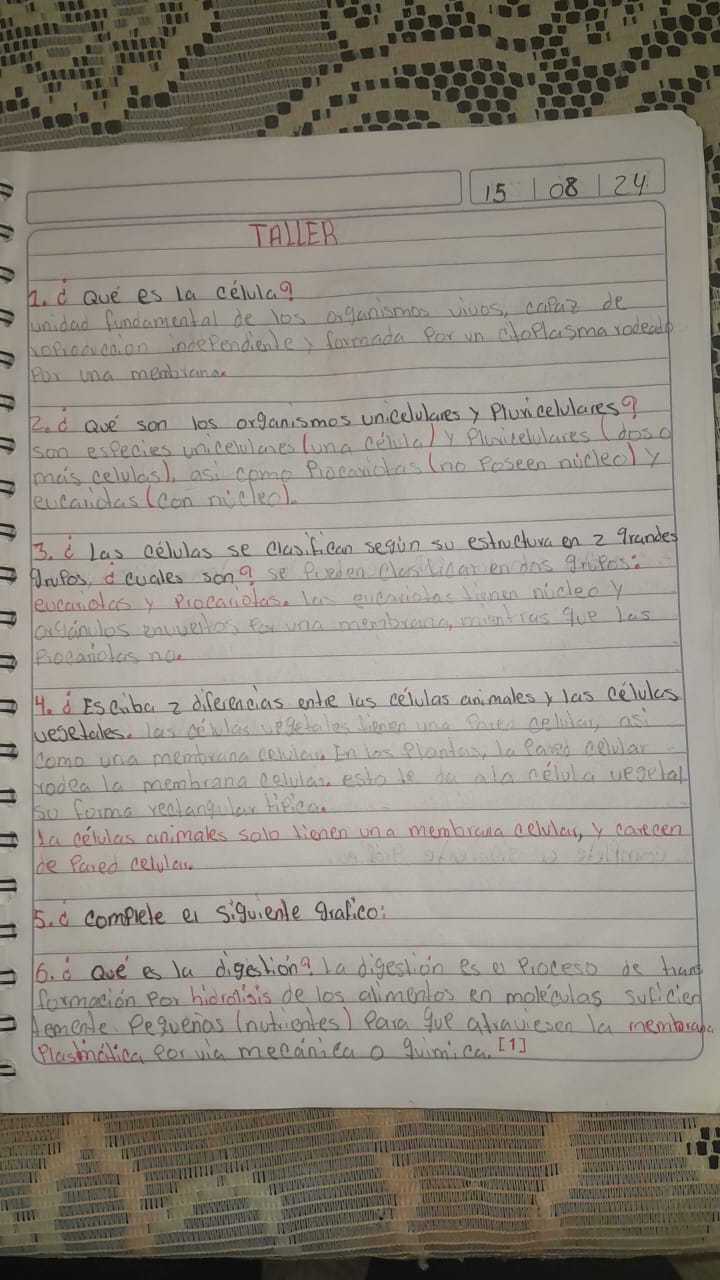 15 | 08 | 24
TALLER
1. ¿ Qué es la célula?
unidad fundamental de los organismos vivos, capaz de
reproduccion independiente y formada por un citoplasma rodeado
por una membrana.
2. ¿ Qué son los organismos unicelulares y Pluricelulares?
son especies unicelulares (una célula) y Pluricelulares (dos o
más celulas), asi como Procariotas (no Poseen núcleo) y
eucariotas (con núcleo).
3. ¿ Las células se clasifican según su estructura en 2 grandes
grupos, ¿ cuales son? se Pueden clasificar en dos grupos:
eucariotas y Procariotas. las eucariotas tienen núcleo y
orgánulos envueltos Por una membrana, mientras que las
Procariotas no.
4. ¿ Escriba 2 diferencias entre las células animales y las células
vegetales. las células vegetales tienen una Pared celular, asi
como una membrana celular. En las Plantas, la Pared celular
rodea la membrana celular. esto le da a la célula vegetal
su forma rectangular tipica.
La células animales solo tienen una membrana celular, y carecen
de Pared celular.
5. ¿ complete el siguiente grafico:
6. ¿ Qué es la digestión? La digestión es el Proceso de trans
formación por hidrolisis de los alimentos en moléculas suficien
temente Pequeñas (nutrientes) Para que atraviesen la membrana
Plasmática por via mecánica o quimica. [1]